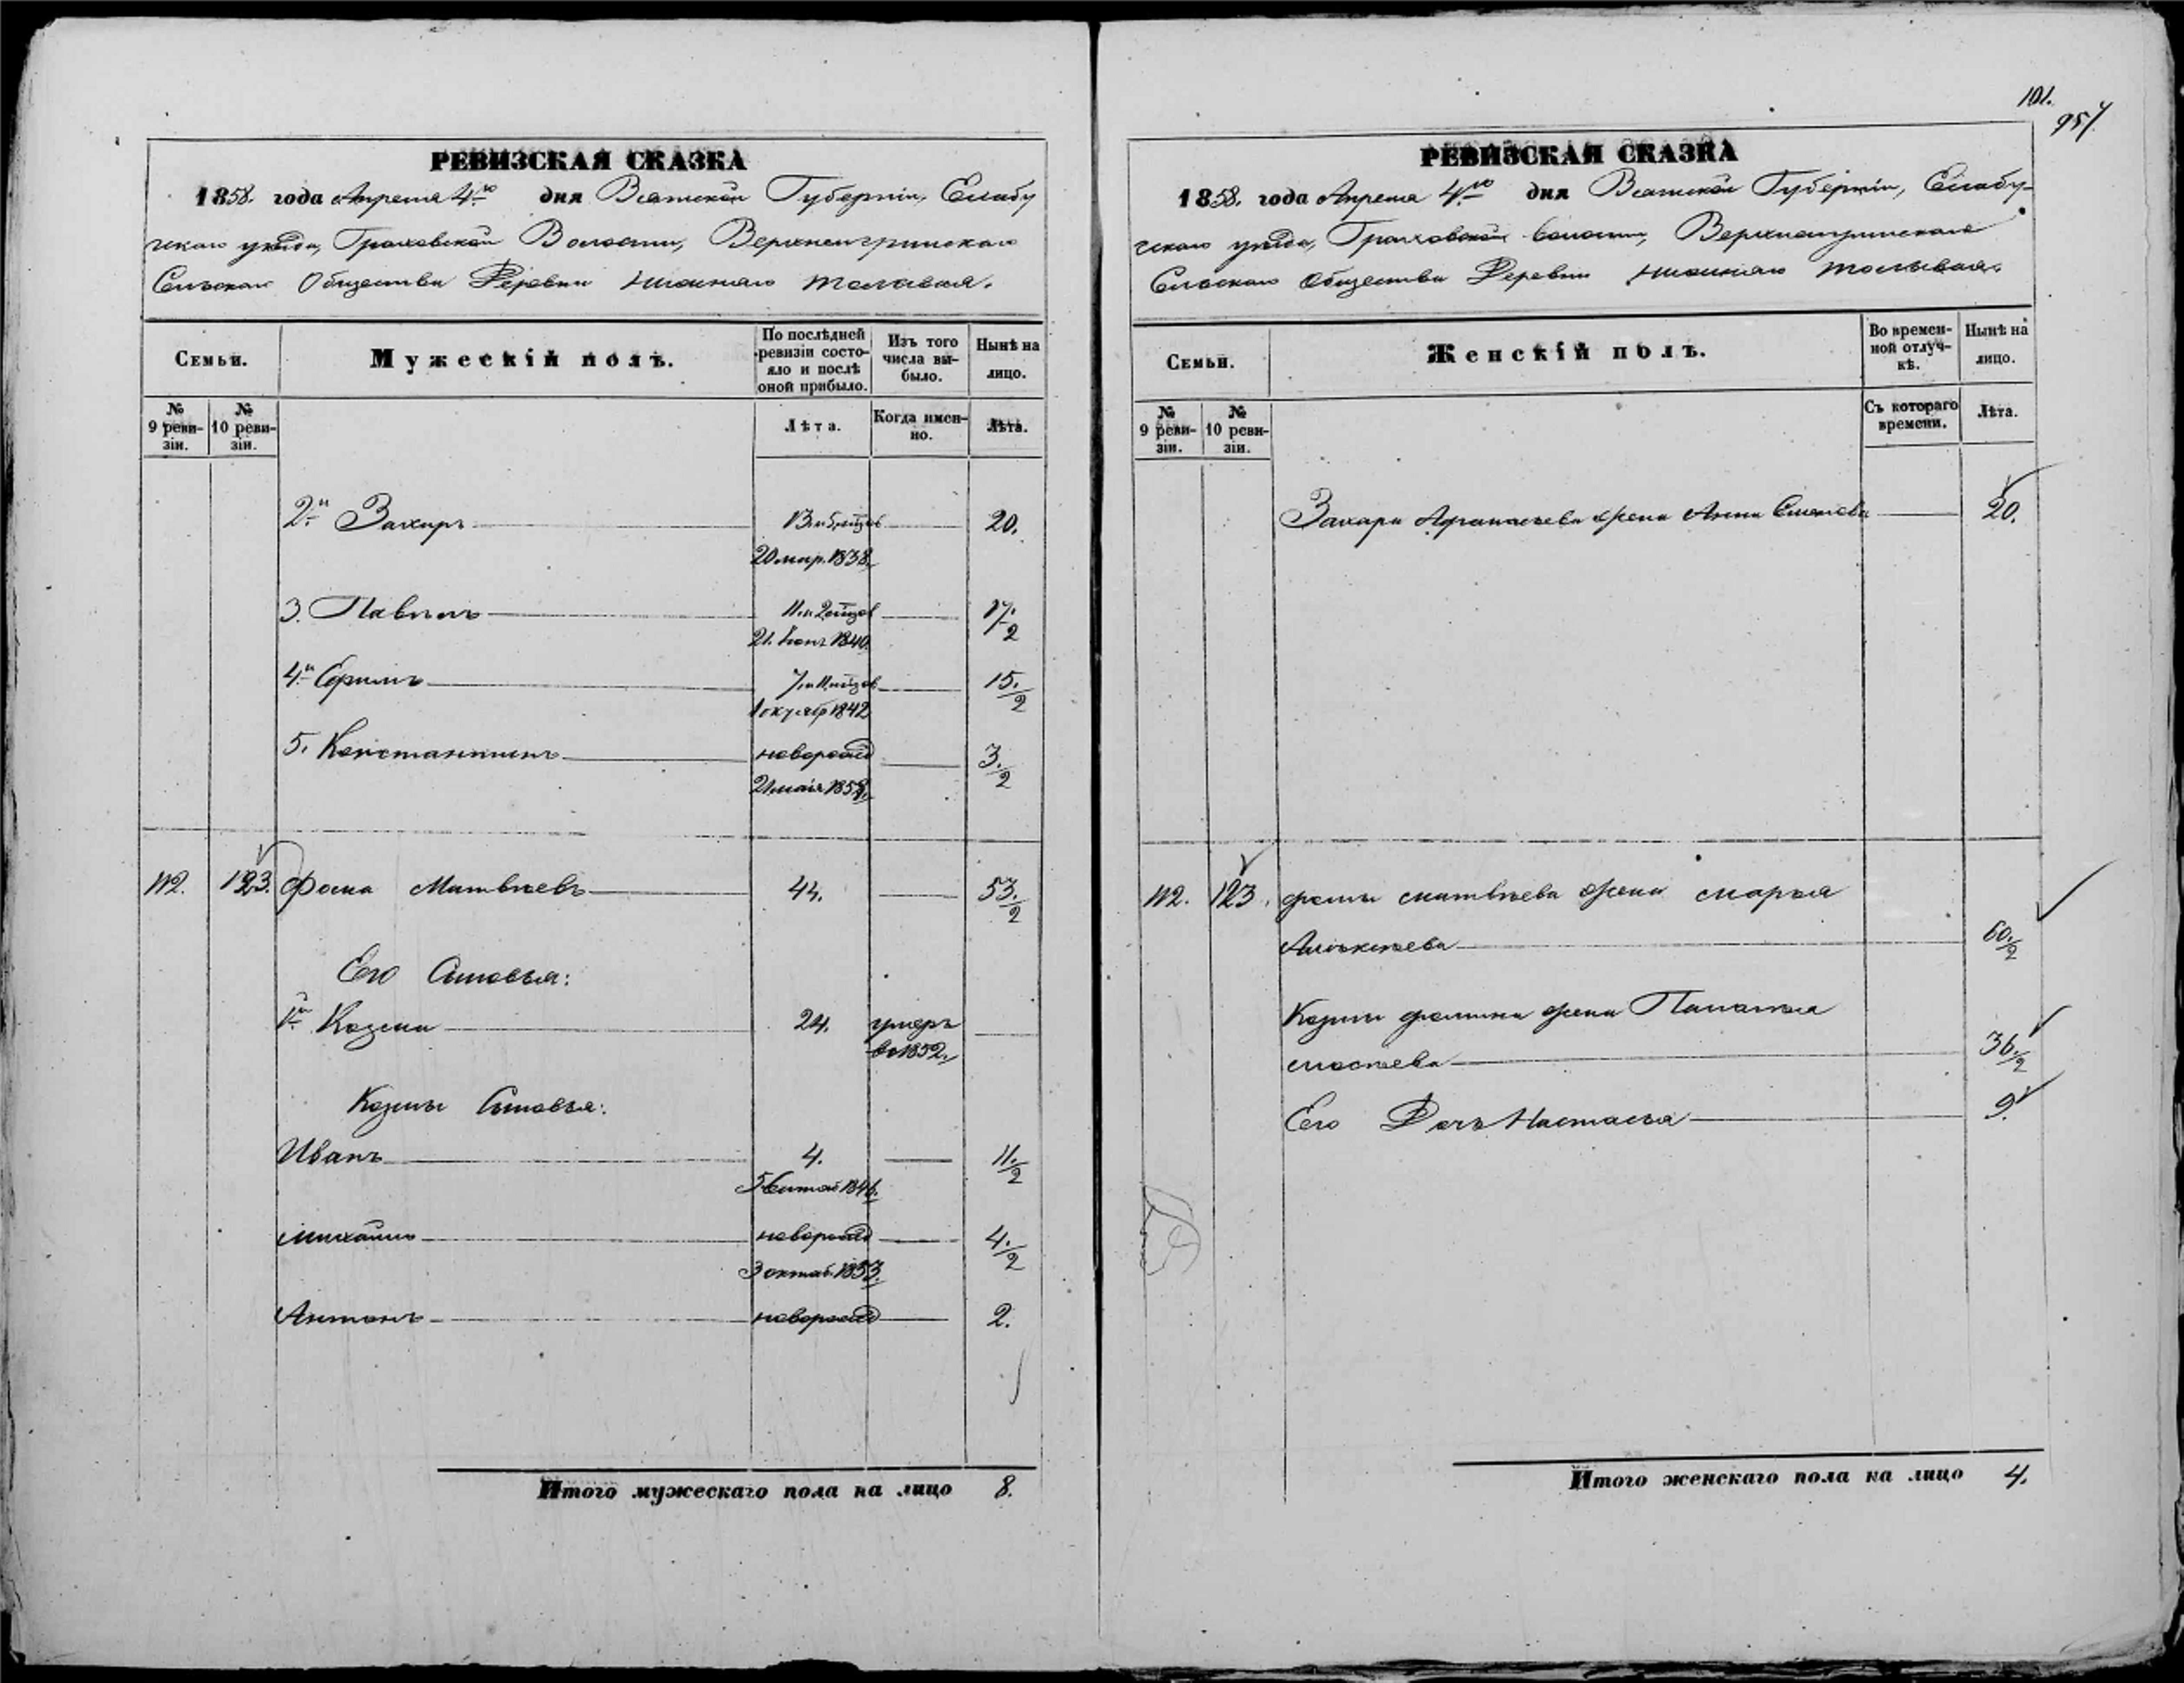 101.
957
РЕВИЗСКАЯ СКАЗКА
1858. года Апреля 4го дня Вятской Губерніи, Елабу
жскаго уезда, Граховской Волости, Верхнеигринскаго
Сельскаго Общества Деревни Нижняго
Семьи.
Мужескій полъ.
По послѣдней ревизіи состояло и послѣ оной прибыло.
Изъ того числа выбыло.
Нынѣ на лицо.
№ 9 ревизіи.
№ 10 ревизіи.
Лѣта.
Когда именно.
Лѣта.
2й Захаръ 20.
20 мар. 1838.
3. Павелъ 11. 17. 1/2
21. 1840.
4й Ефимъ 15. 1/2
1842
5. Константинъ новорожд 3. 1/2
21 мая
112. 123. Фома Матвѣевъ 44. 53. 1/2
Его Сыновья:
1й Козма 24. умеръ
въ 1852.
Козмы Сыновья:
Иванъ 4. 11. 1/2
5 1846.
Михайло новорожд 4. 1/2
3 октяб. 1853.
Антонъ новорожд 2.
Итого мужескаго пола на лицо 8.
РЕВИЗСКАЯ СКАЗКА
1858. года Апреля 4го дня Вятской Губерніи, Елабу-
жскаго уезда, Граховской Волости, Верхнеигринскаго
Сельскаго Общества Деревни Нижняго
Семьи.
Женскій полъ.
Во временной отлучкѣ.
Нынѣ на лицо.
№ 9 ревизіи.
№ 10 ревизіи.
Съ котораго времени.
Лѣта.
Захара Афанасьева жена Анна Семенова 20.
112. 123. Фомы Матвѣева жена Марья
Алексѣева 60. 1/2
Козмы Фомина жена Паланья
36. 1/2
Его Дочь Настасья 9.
Итого женскаго пола на лицо 4.